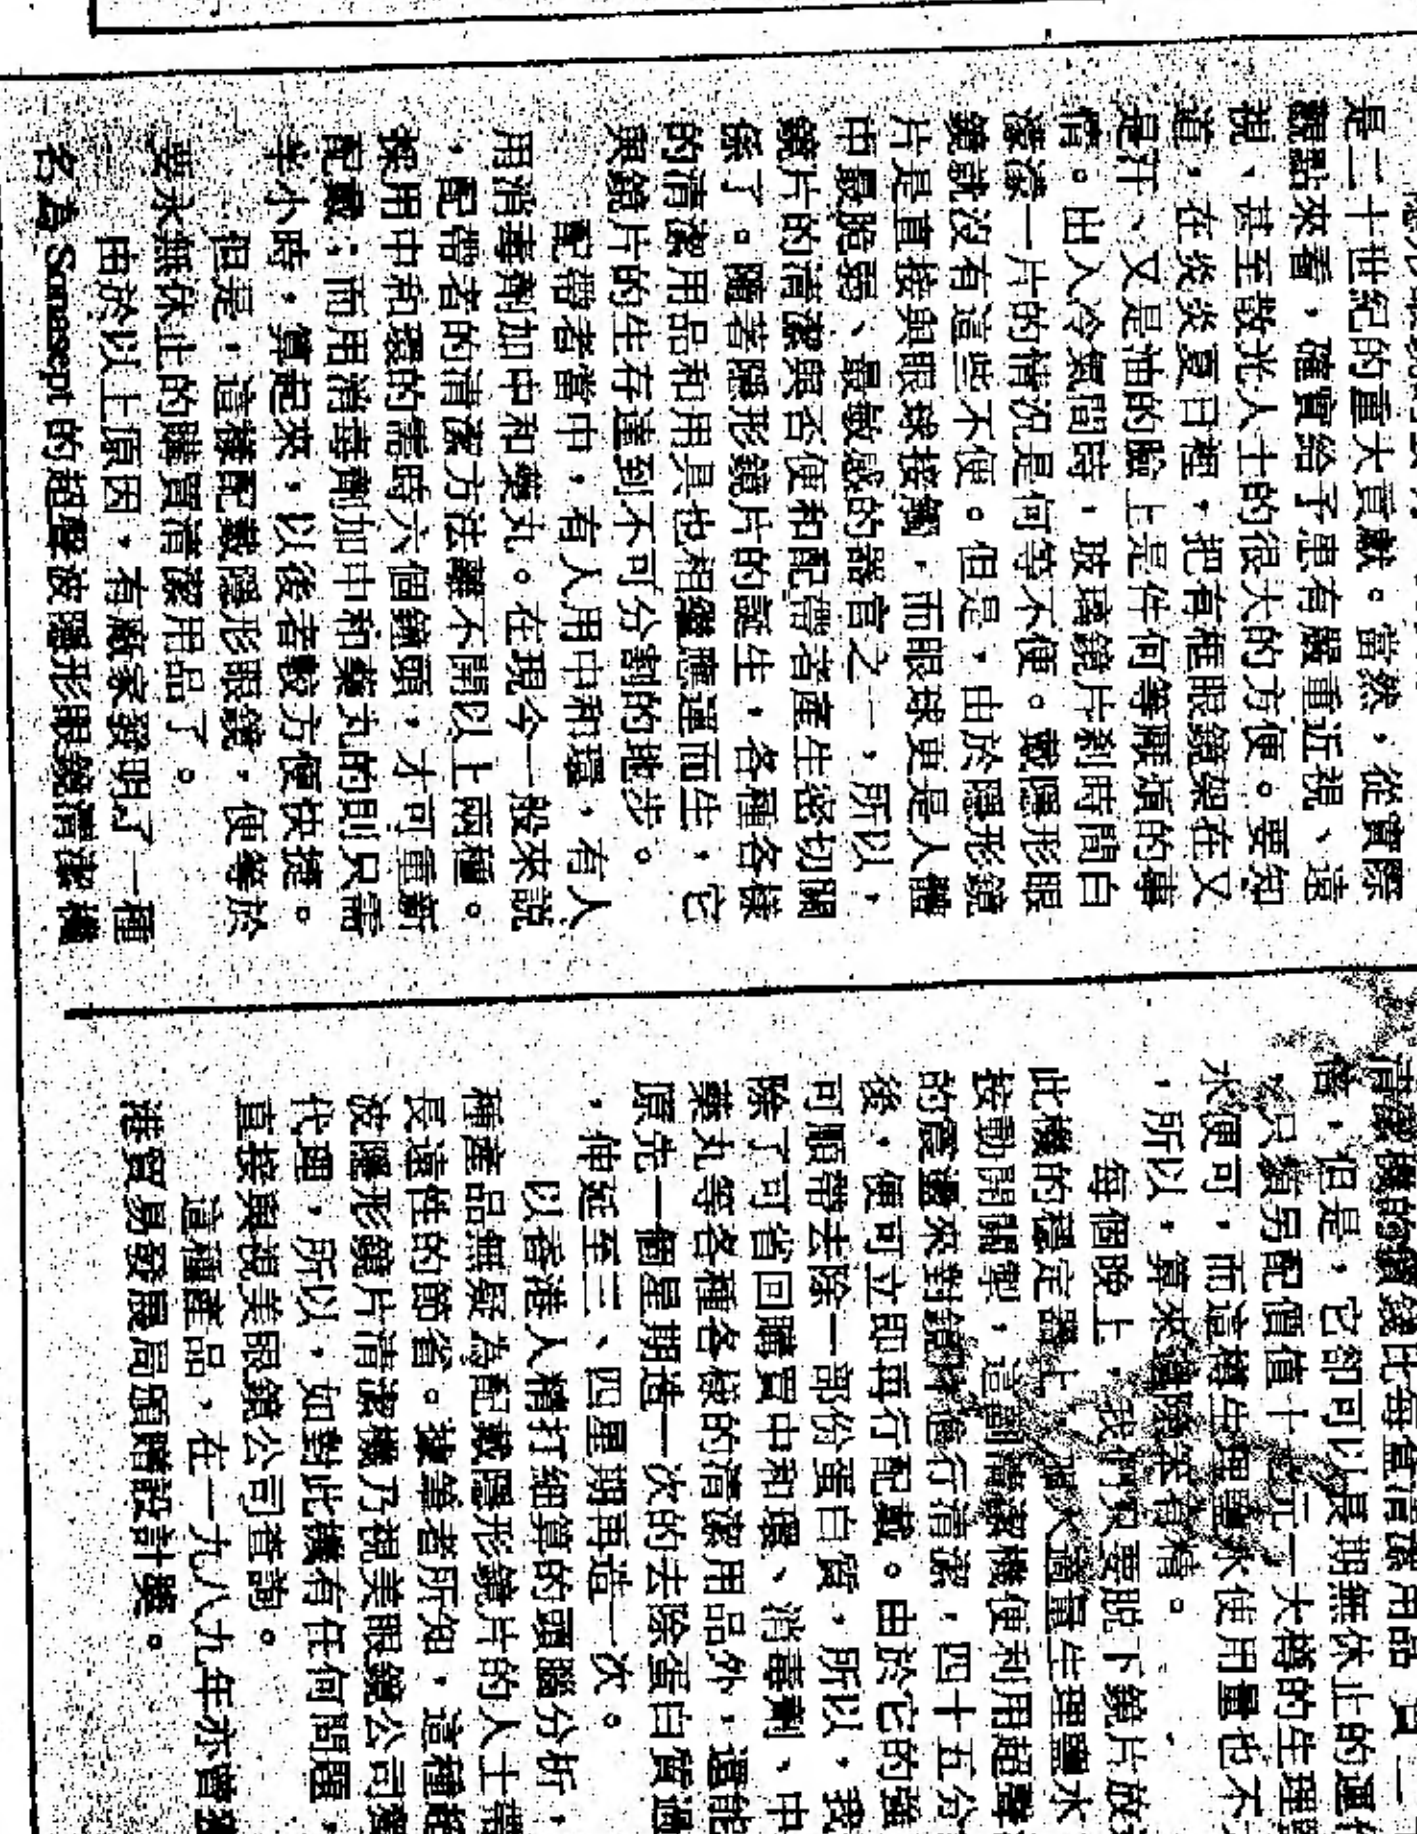 是二十世紀的重大貢獻。當然，從實際
觀點來看，確實給予患有嚴重近視、遠
視、甚至散光人士的很大的方便。要知
道，在炎炎夏日裡，把有框眼鏡架在又
是汗、又是油的臉上是件何等厭煩的事
情。出入冷氣間時，玻璃鏡片剎時間白
濛濛一片的情況是何等不便。戴隱形眼
鏡就沒有這些不便。但是，由於隱形鏡
片是直接與眼球接觸，而眼球更是人體
中最脆弱、最敏感的器官之一，所以，
鏡片的清潔與否便和配帶者產生密切關
係了。隨著隱形鏡片的誕生，各種各樣
的清潔用品和用具也相繼應運而生，它
與鏡片的生存達到不可分割的地步。
配帶者當中，有人用中和環，有人
用消毒劑加中和藥丸。在現今一般來説
，配帶者的清潔方法離不開以上兩種。
採用中和環的需時六個鐘頭，才可重新
配戴；而用消毒劑加中和藥丸的則只需
半小時，算起來，以後者較方便快捷。
但是，這樣配戴隱形眼鏡，便等於
要永無休止的購買清潔用品了。
由於以上原因，有廠家發明了一種
名為 Sonasept 的超聲波隱形眼鏡清潔機
清潔機的價錢比每套清潔用品 貴一
，但是，它卻可以長期無休止的運
，只須另配價值十 元一大樽的生理
水便可，而這樽生理鹽水使用量也不
，所以，算來 有精。
每個晚上，我們只要脱下鏡片放
此機的穩定器上， 入適量生理鹽水
按動開關掣，這副清潔機便利用超聲
的震盪來對鏡片進行清潔，四十五分
後，便可立即再行配戴。由於它的強
可順帶去除一部份蛋白質，所以，我
除了可省回購買中和環、消毒劑、中
藥丸等各種各樣的清潔用品外，還能
原先一個星期造一次的去除蛋白質過
，伸延至三、四星期再造一次。
以香港人精打細算的頭腦分析，
種產品無疑為配戴隱形鏡片的人士帶
長遠性的節省。據筆者所知，這種超
波隱形鏡片清潔機乃視美眼鏡公司獨
代理，所以，如對此機有任何問題，
直接與視美眼鏡公司查詢。
這種產品，在一九八九年亦曾獲
港貿易發展局頒贈設計獎。